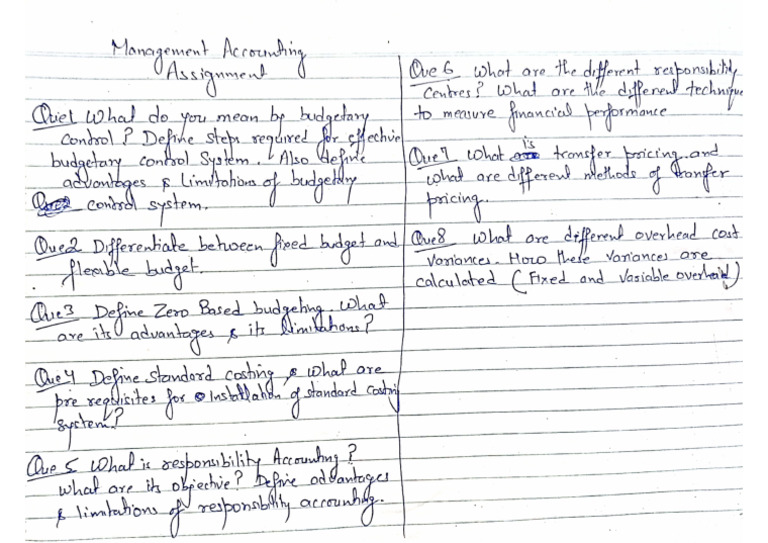 Management Accounting
Assignment
Que1 What do you mean by budgetary
control? Define steps required for effective
budgetary control System. Also define
advantages & Limitations of budgetary
control system.
Que2 Differentiate between fixed budget and
flexible budget.
Que3 Define Zero Based budgeting. What
are its advantages & its limitations?
Que4 Define Standard costing & what are
pre requisites for Installation of standard costing
system?
Que 5 What is responsibility Accounting?
What are its objective? Define advantages
& limitations of responsibility accounting.
Que 6 What are the different responsibility
Centres? What are the different technique
to measure financial performance
Que7 What is transfer pricing and
what are different methods of transfer
pricing.
Que8 What are different overhead cost
variances. How these variances are
calculated (Fixed and Variable overhead)